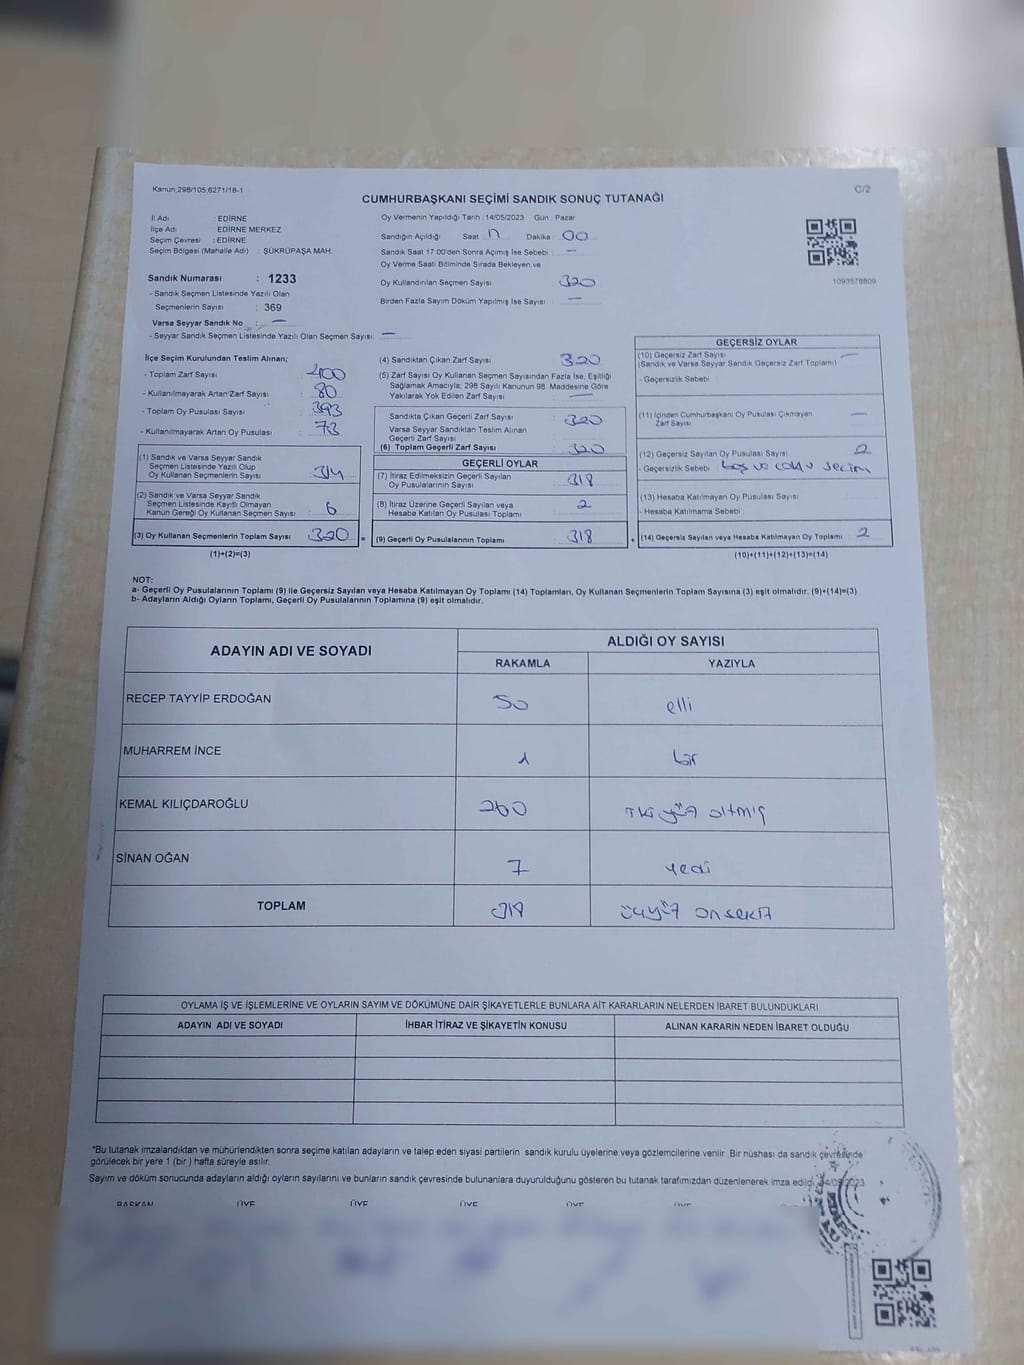 Kanun;298/105;6271/18-1
C/2
CUMHURBAŞKANI SEÇİMİ SANDIK SONUÇ TUTANAĞI
İl Adı : EDİRNE
İlçe Adı : EDİRNE MERKEZ
Seçim Çevresi : EDİRNE
Seçim Bölgesi (Mahalle Adı) : ŞÜKRÜPAŞA MAH.
Oy Vermenin Yapıldığı Tarih : 14/05/2023 Gün : Pazar
Sandığın Açıldığı Saat 17 Dakika : 00
Sandık Saat 17:00'den Sonra Açımış İse Sebebi : —
Oy Verme Saati Bitiminde Sırada Bekleyen ve
Oy Kullandırılan Seçmen Sayısı : 320
Birden Fazla Sayım Döküm Yapılmış İse Sayısı : —
1093578809
Sandık Numarası : 1233
- Sandık Seçmen Listesinde Yazılı Olan
Seçmenlerin Sayısı : 369
Varsa Seyyar Sandık No : —
- Seyyar Sandık Seçmen Listesinde Yazılı Olan Seçmen Sayısı: —
İlçe Seçim Kurulundan Teslim Alınan;
- Toplam Zarf Sayısı : 400
- Kullanılmayarak Artan Zarf Sayısı : 80
- Toplam Oy Pusulası Sayısı : 393
- Kullanılmayarak Artan Oy Pusulası : 73
(1) Sandık ve Varsa Seyyar Sandık
Seçmen Listesinde Yazılı Olup
Oy Kullanan Seçmenlerin Sayısı : 314
(2) Sandık ve Varsa Seyyar Sandık
Seçmen Listesinde Kayıtlı Olmayan
Kanun Gereği Oy Kullanan Seçmen Sayısı : 6
(3) Oy Kullanan Seçmenlerin Toplam Sayısı : 320
(1)+(2)=(3)
(4) Sandıktan Çıkan Zarf Sayısı : 320
(5) Zarf Sayısı Oy Kullanan Seçmen Sayısından Fazla İse, Eşitliği
Sağlamak Amacıyla; 298 Sayılı Kanunun 98. Maddesine Göre
Yakılarak Yok Edilen Zarf Sayısı : —
Sandıkta Çıkan Geçerli Zarf Sayısı : 320
Varsa Seyyar Sandıktan Teslim Alınan
Geçerli Zarf Sayısı :
(6) Toplam Geçerli Zarf Sayısı : 320
GEÇERLİ OYLAR
(7) İtiraz Edilmeksizin Geçerli Sayılan
Oy Pusulalarının Sayısı : 318
(8) İtiraz Üzerine Geçerli Sayılan veya
Hesaba Katılan Oy Pusulası Toplamı : 2
= (9) Geçerli Oy Pusulalarının Toplamı : 318
GEÇERSİZ OYLAR
(10) Geçersiz Zarf Sayısı : —
(Sandık ve Varsa Seyyar Sandık Geçersiz Zarf Toplamı)
- Geçersizlik Sebebi :
(11) İçinden Cumhurbaşkanı Oy Pusulası Çıkmayan
Zarf Sayısı : —
(12) Geçersiz Sayılan Oy Pusulası Sayısı : 2
- Geçersizlik Sebebi : boş ve seçim
(13) Hesaba Katılmayan Oy Pusulası Sayısı :
- Hesaba Katılmama Sebebi :
+ (14) Geçersiz Sayılan veya Hesaba Katılmayan Oy Toplamı : 2
(10)+(11)+(12)+(13)=(14)
NOT:
a- Geçerli Oy Pusulalarının Toplamı (9) ile Geçersiz Sayılan veya Hesaba Katılmayan Oy Toplamı (14) Toplamları, Oy Kullanan Seçmenlerin Toplam Sayısına (3) eşit olmalıdır. (9)+(14)=(3)
b- Adayların Aldığı Oyların Toplamı, Geçerli Oy Pusulalarının Toplamına (9) eşit olmalıdır.
ADAYIN ADI VE SOYADI
ALDIĞI OY SAYISI
RAKAMLA YAZIYLA
RECEP TAYYİP ERDOĞAN 50 elli
MUHARREM İNCE 1 bir
KEMAL KILIÇDAROĞLU 260 ikiyüz altmış
SİNAN OĞAN 7 yedi
TOPLAM 318 üçyüz onsekiz
OYLAMA İŞ VE İŞLEMLERİNE VE OYLARIN SAYIM VE DÖKÜMÜNE DAİR ŞİKAYETLERLE BUNLARA AİT KARARLARIN NELERDEN İBARET BULUNDUKLARI
ADAYIN ADI VE SOYADI İHBAR İTİRAZ VE ŞİKAYETİN KONUSU ALINAN KARARIN NEDEN İBARET OLDUĞU
*Bu tutanak imzalandıktan ve mühürlendikten sonra seçime katılan adayların ve talep eden siyasi partilerin sandık kurulu üyelerine veya gözlemcilerine verilir. Bir nüshası da sandık çevresinde
görülecek bir yere 1 (bir ) hafta süreyle asılır.
Sayım ve döküm sonucunda adayların aldığı oyların sayılarını ve bunların sandık çevresinde bulunanlara duyurulduğunu gösteren bu tutanak tarafımızdan düzenlenerek imza edildi. 14/05/2023
BAŞKAN ÜYE ÜYE ÜYE ÜYE ÜYE